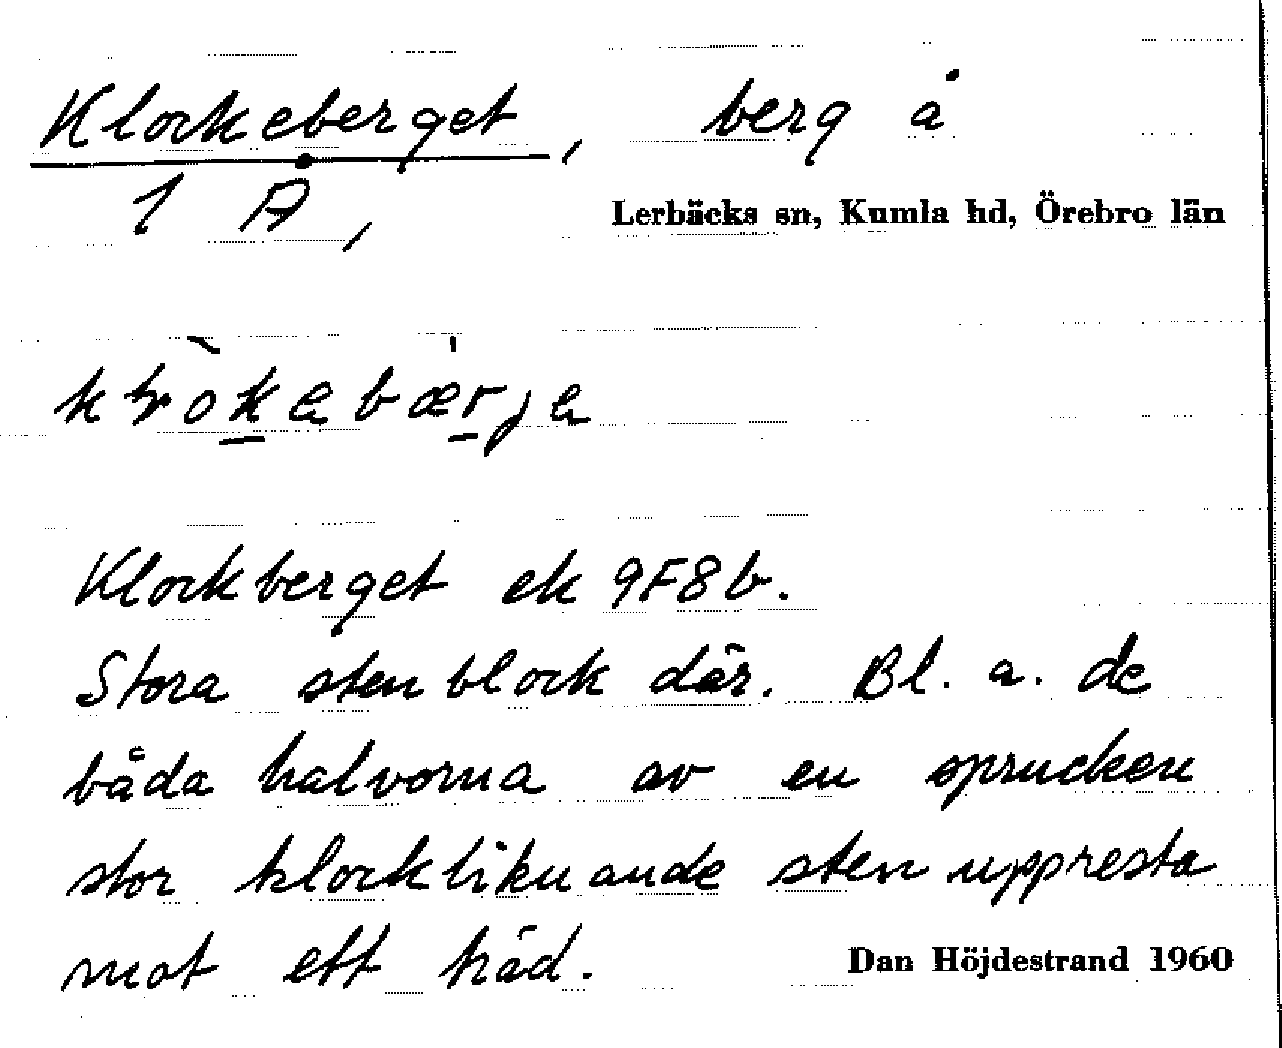 Klockeberget, berg å
1 A,
Lerbäcks sn, Kumla hd, Örebro län
Klockberget ek 9F8b.
Stora stenblock där. Bl. a. de
båda halvorna av en sprucken
stor klockliknande sten uppresta
mot ett träd.
Dan Höjdestrand 1960